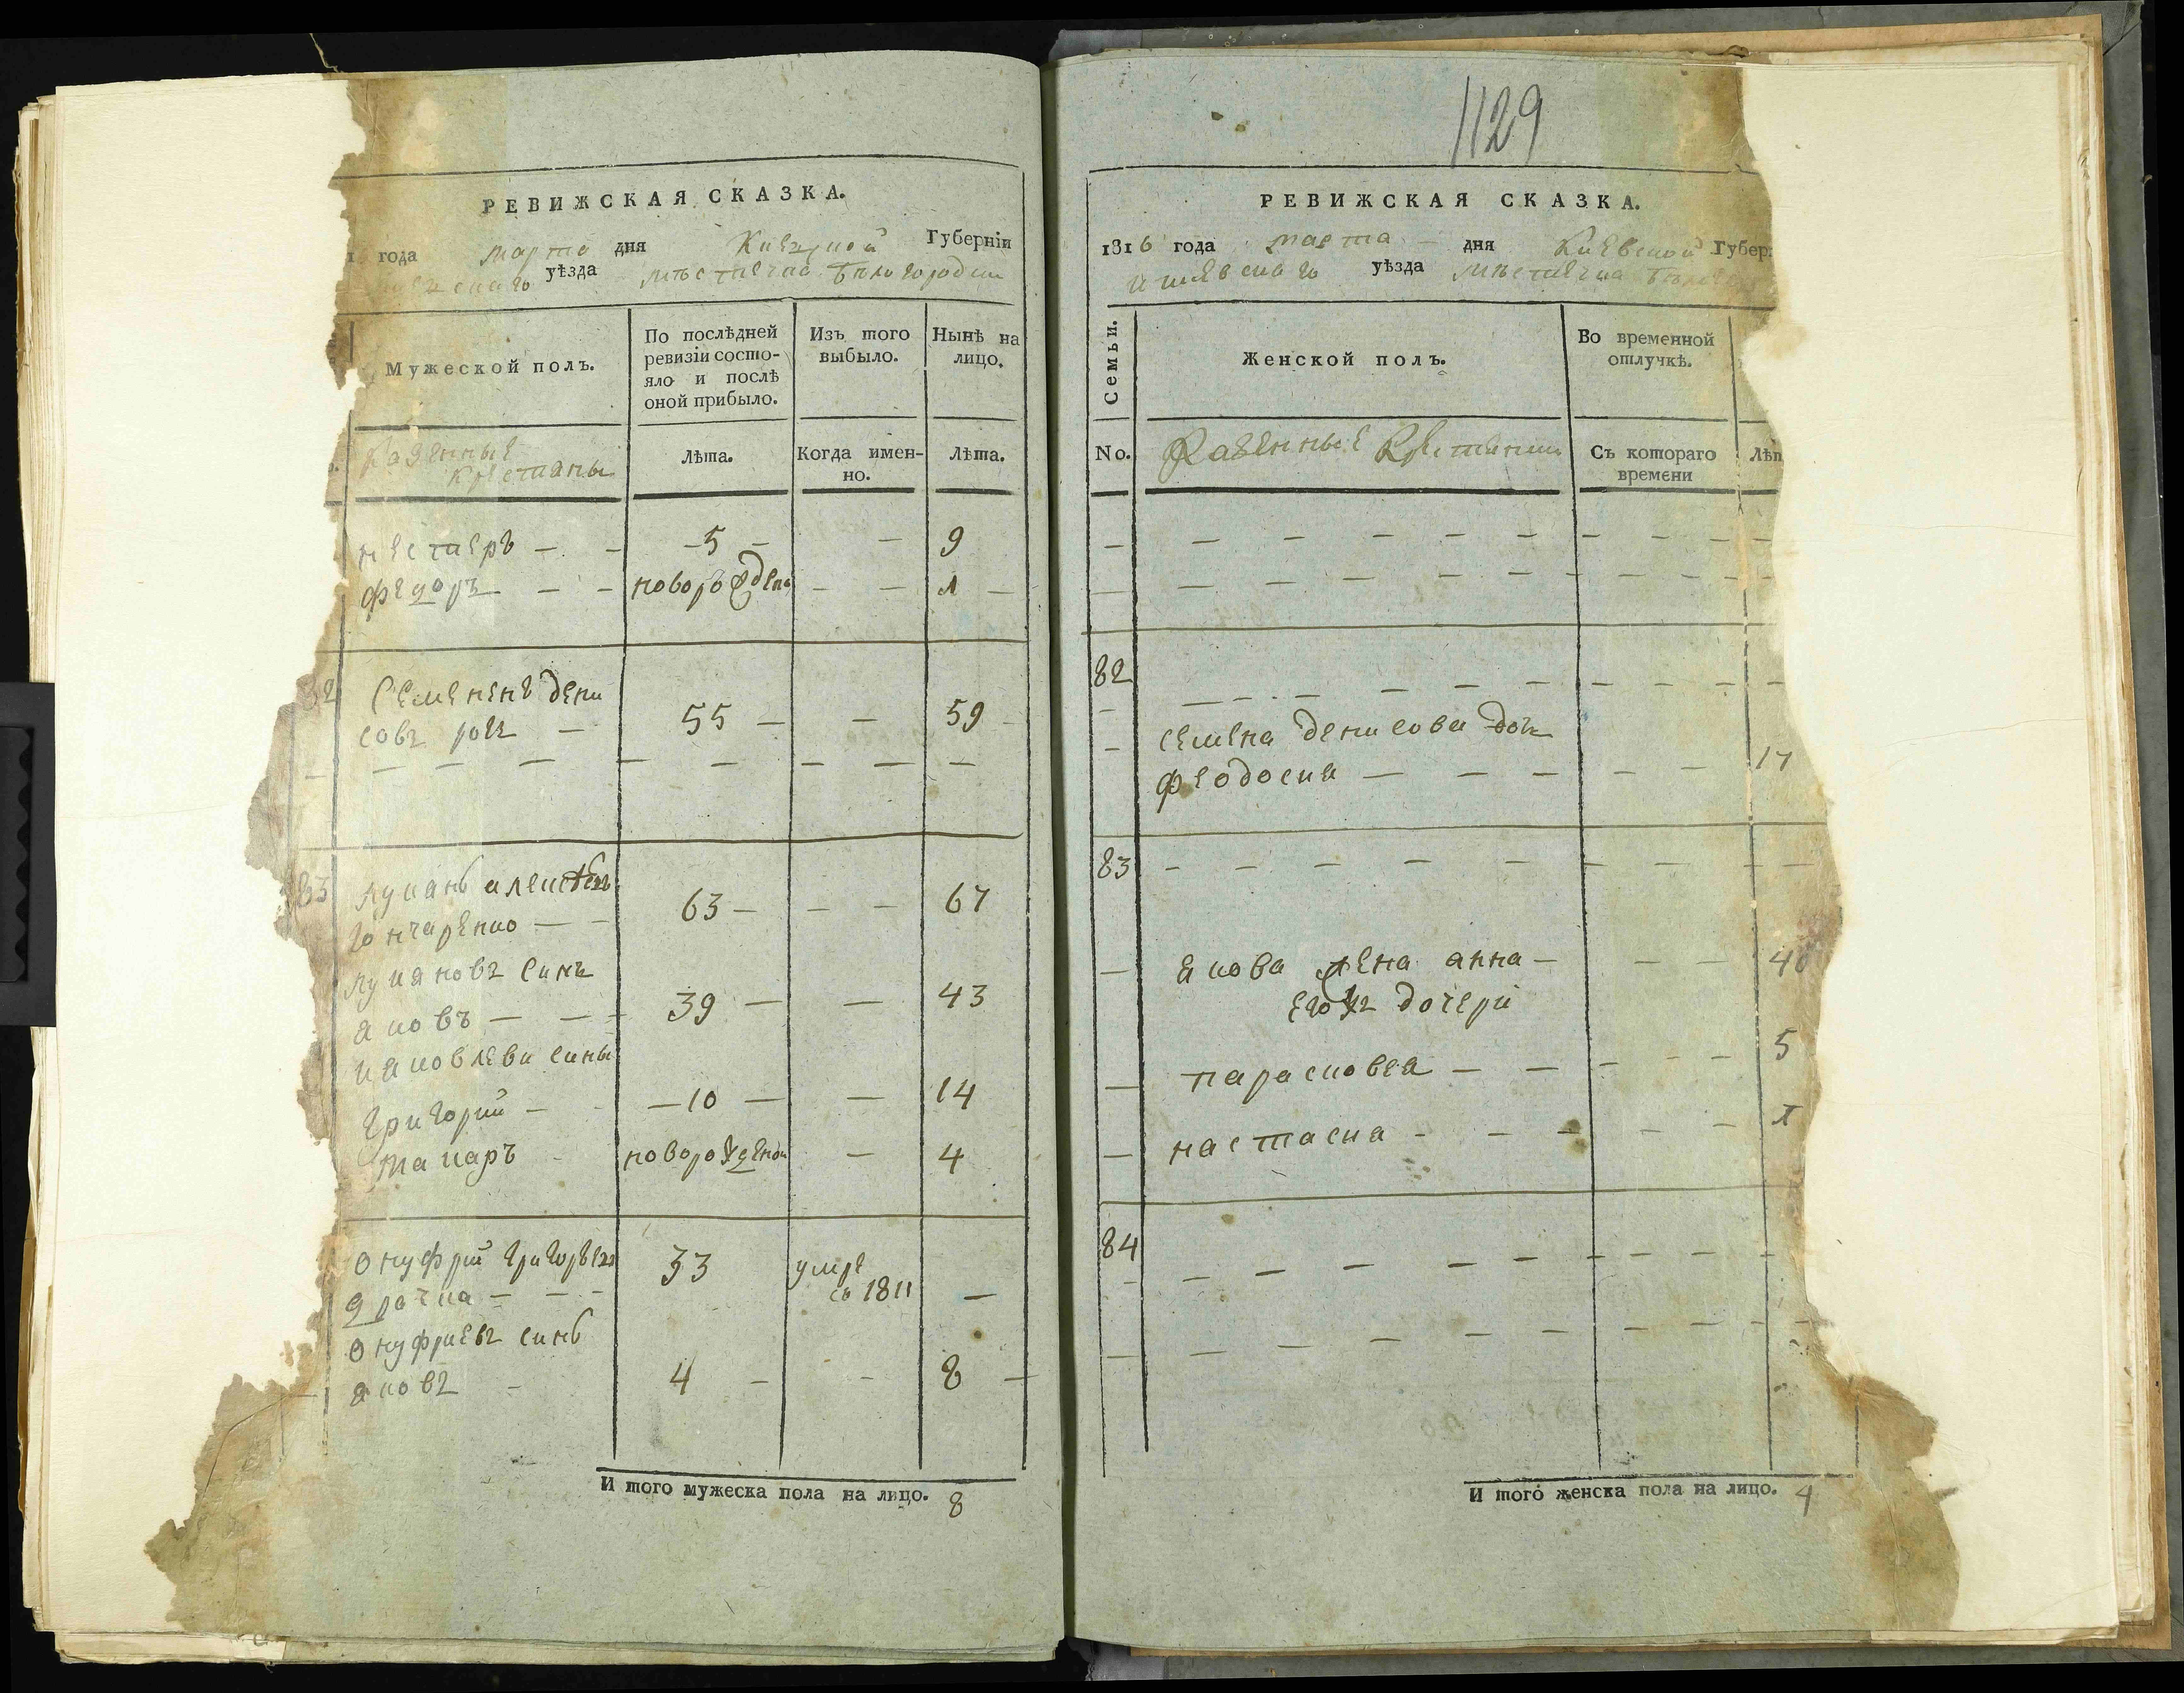 РЕВИЖСКАЯ СКАЗКА.
года марта дня Киевской Губерніи
уѣзда мѣстечка Бѣлогородки
Мужеской полъ.
По послѣдней ревизіи состо-
яло и послѣ
оной прибыло.
Изъ того выбыло.
Нынѣ на лицо.
Казенные
крестяны
Лѣта.
Когда имен-
но.
Лѣта.
нестеръ — — — 5 — — 9
федоръ — — — — — 1 —
82 Семенъ дени
совъ 55 — — 59
83 лукянъ
гончаренко — — 63 — — — 67
лукяновъ синъ
яковъ — — — 39 — — 43
яковлеви сины
григорий — — 10 — — 14
макаръ новорожденой — 4
онуфрий григорьевъ 33 умре
драчка — — — въ 1811 —
онуфриевъ синъ
яковъ 4 — — 8 —
И того мужеска пола на лицо. 8
1129
РЕВИЖСКАЯ СКАЗКА.
1816 года марта — дня Киевской Губер
киевскаго уѣзда мѣстечка
Семьи.
Женской полъ.
Во временной
отлучкѣ.
No.
Казенные Крестянки
Съ котораго
времени
82
семена денисова дочь
феодосия — — — — — 17
83
якова жена анна — — — — 40
его жъ дочери
парасковея — — — — — 5
настасия — — — — — 1
84
И того женска пола на лицо. 4